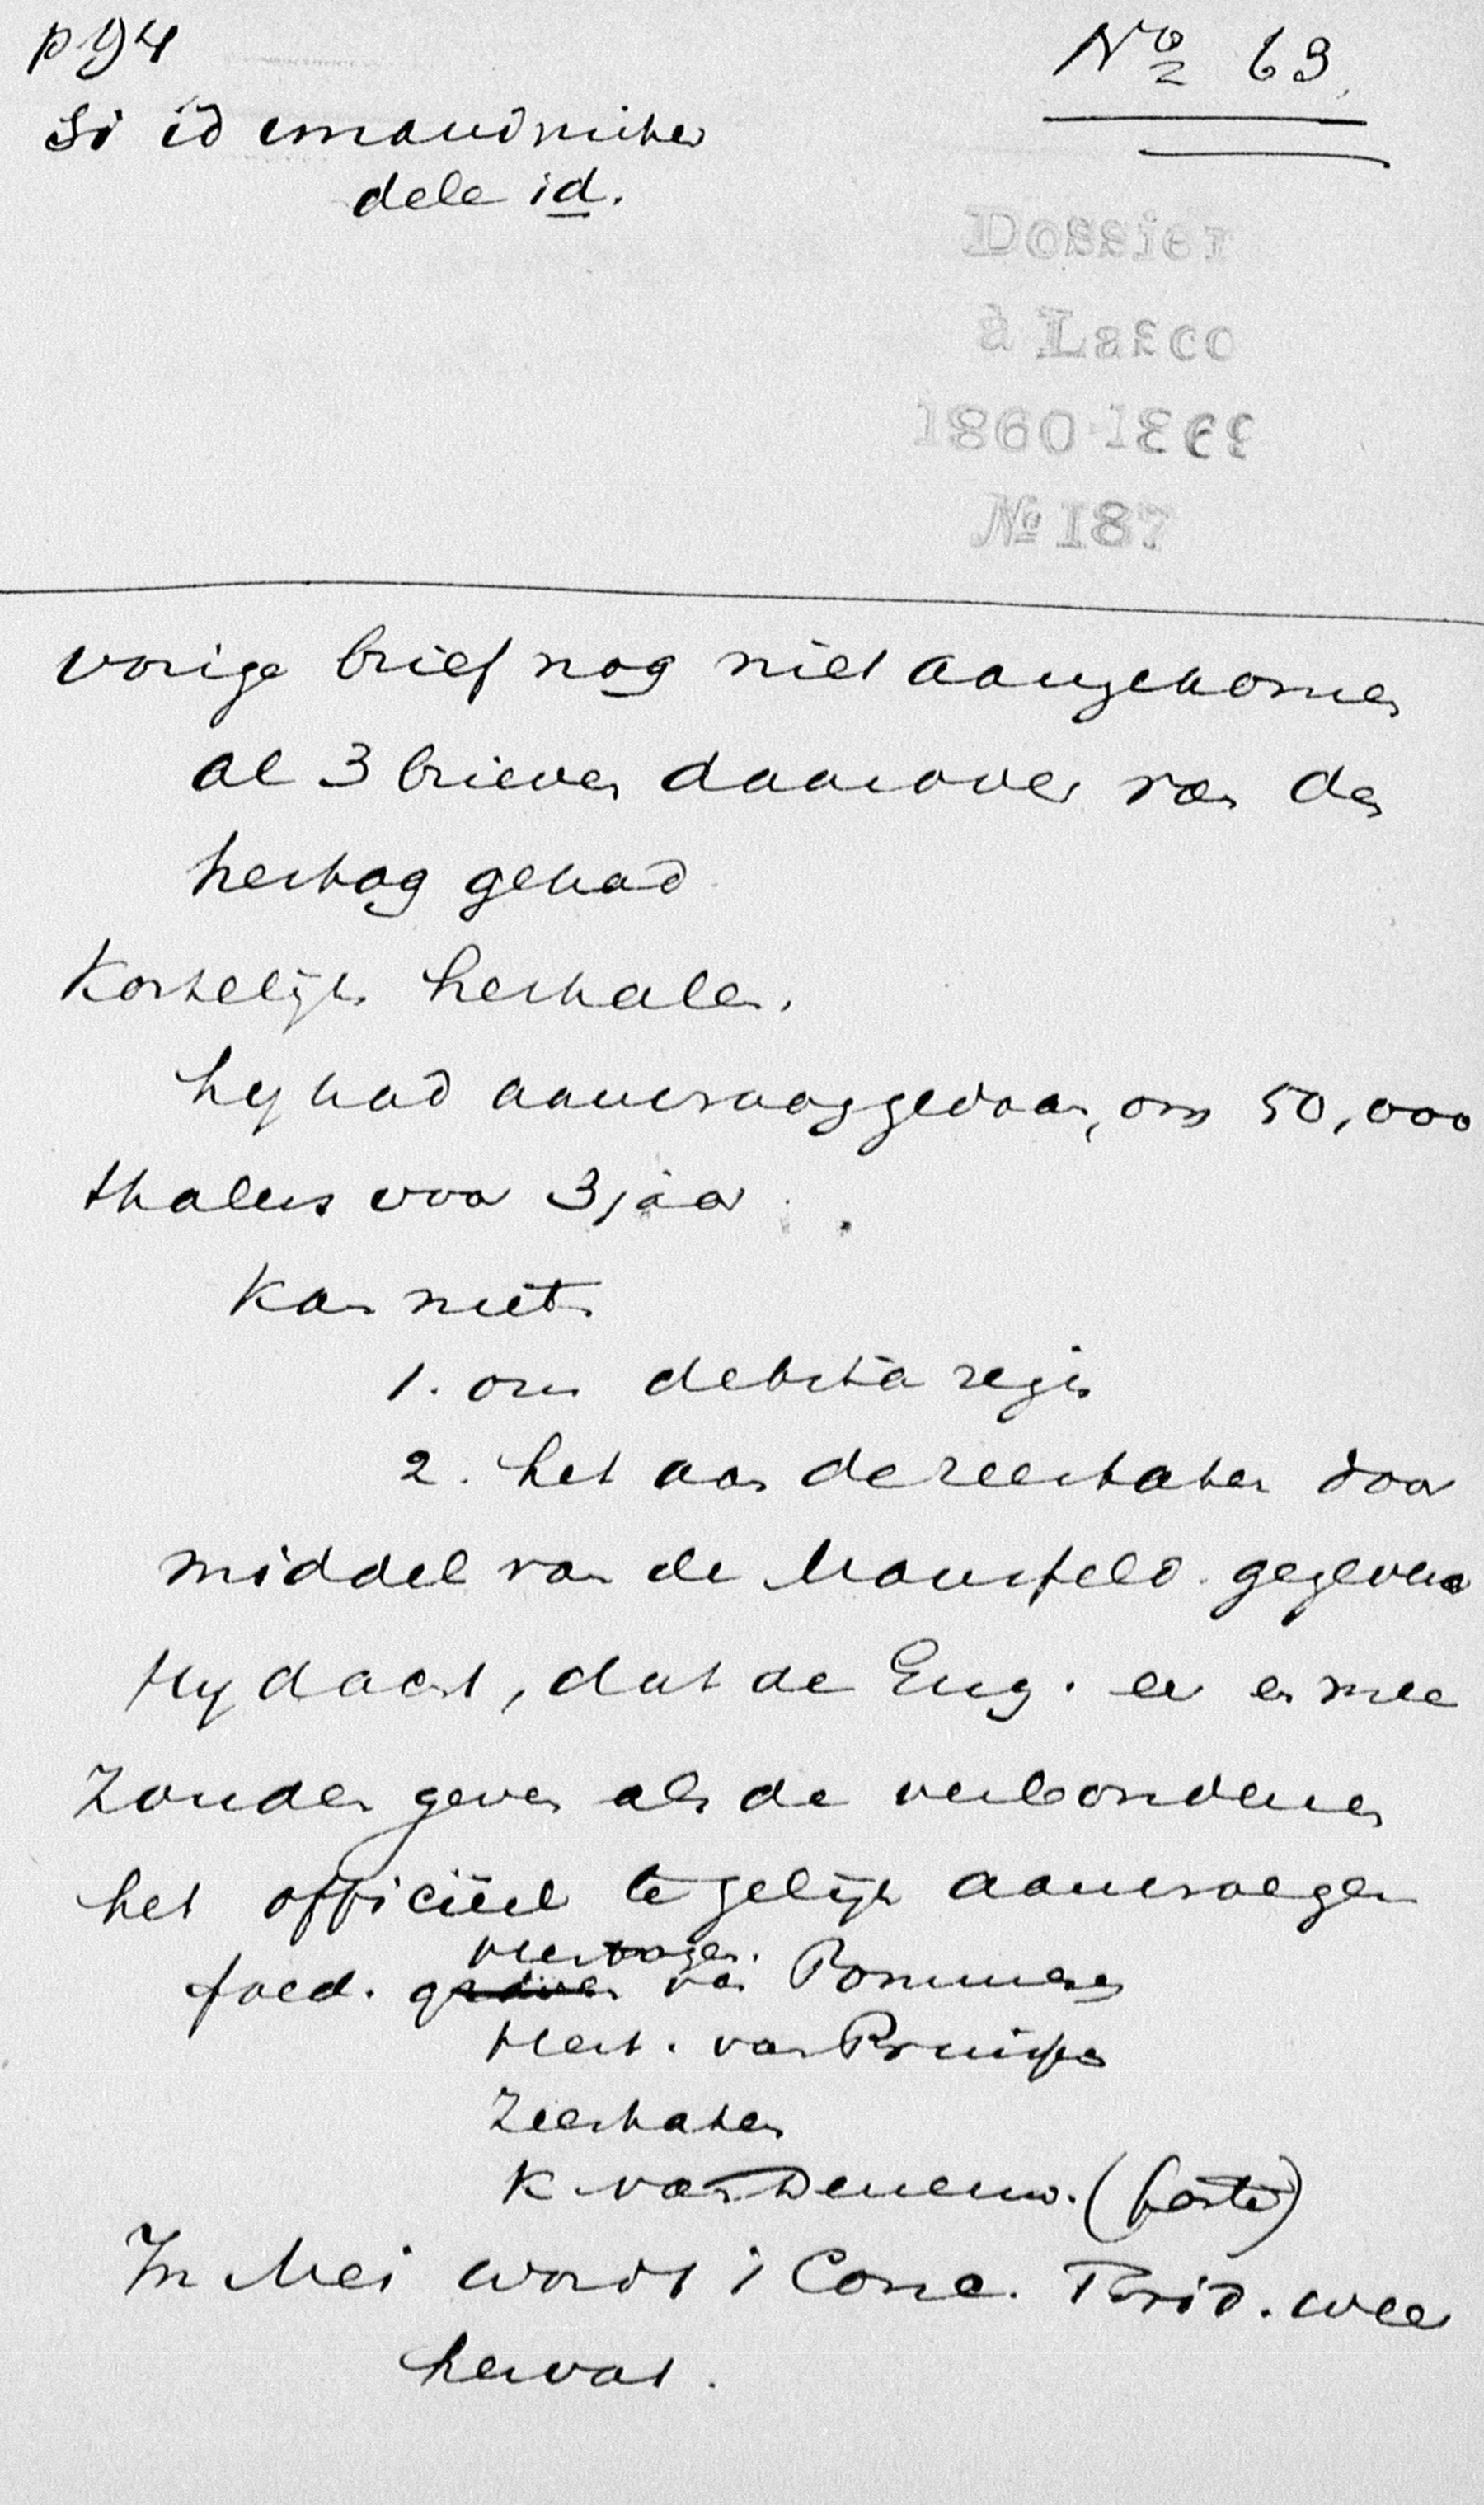 p 94
No 63.
si id emandmiter
dele id.
Dossier
à Lasco
1860-1869
№ 187
vorige brief nog niet aangekomen
al 3 brieven daarover van den
hertog gehad
Kortelijk herhalen.
hij had aanvraag gedaan, om 50,000
thalers voor 3 jaar.
Kan niet
1. om debita regis
2. het aan de zeestaten door
middel van de Mansfeld. gegeven
Hij dacht, dat de Eng. er en mee
zouden geven als de verbondenen
het officiëel tegelijk aanvroegen
foed. graven hertogen. van Pommeren
Hert. van Pruisen
Zeestaten
K van Denem. (forte)
In Mei wordt 't Conc. Trid. weer
hervat.